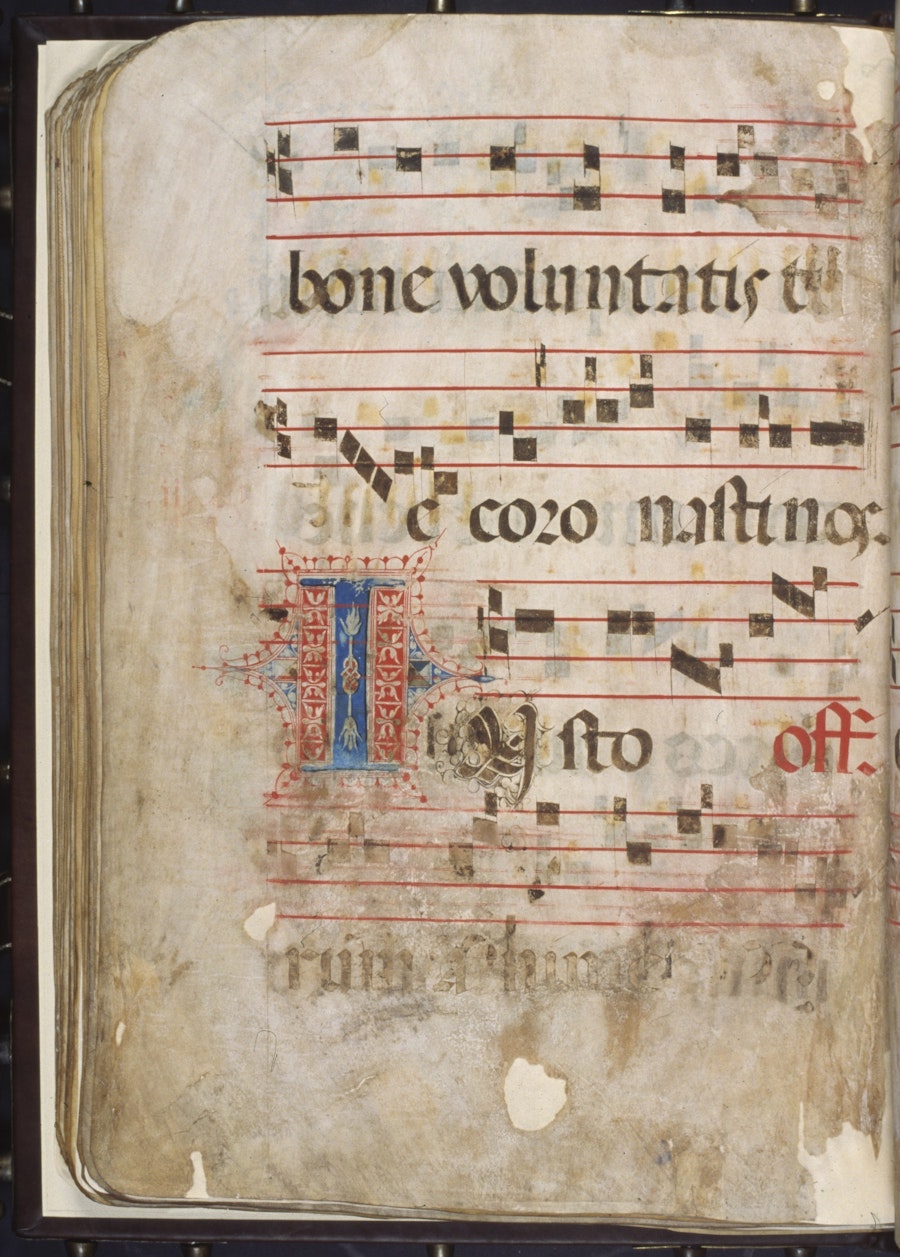 bone voluntatis tu
e coro nasti nos.
I Usto off.
rum